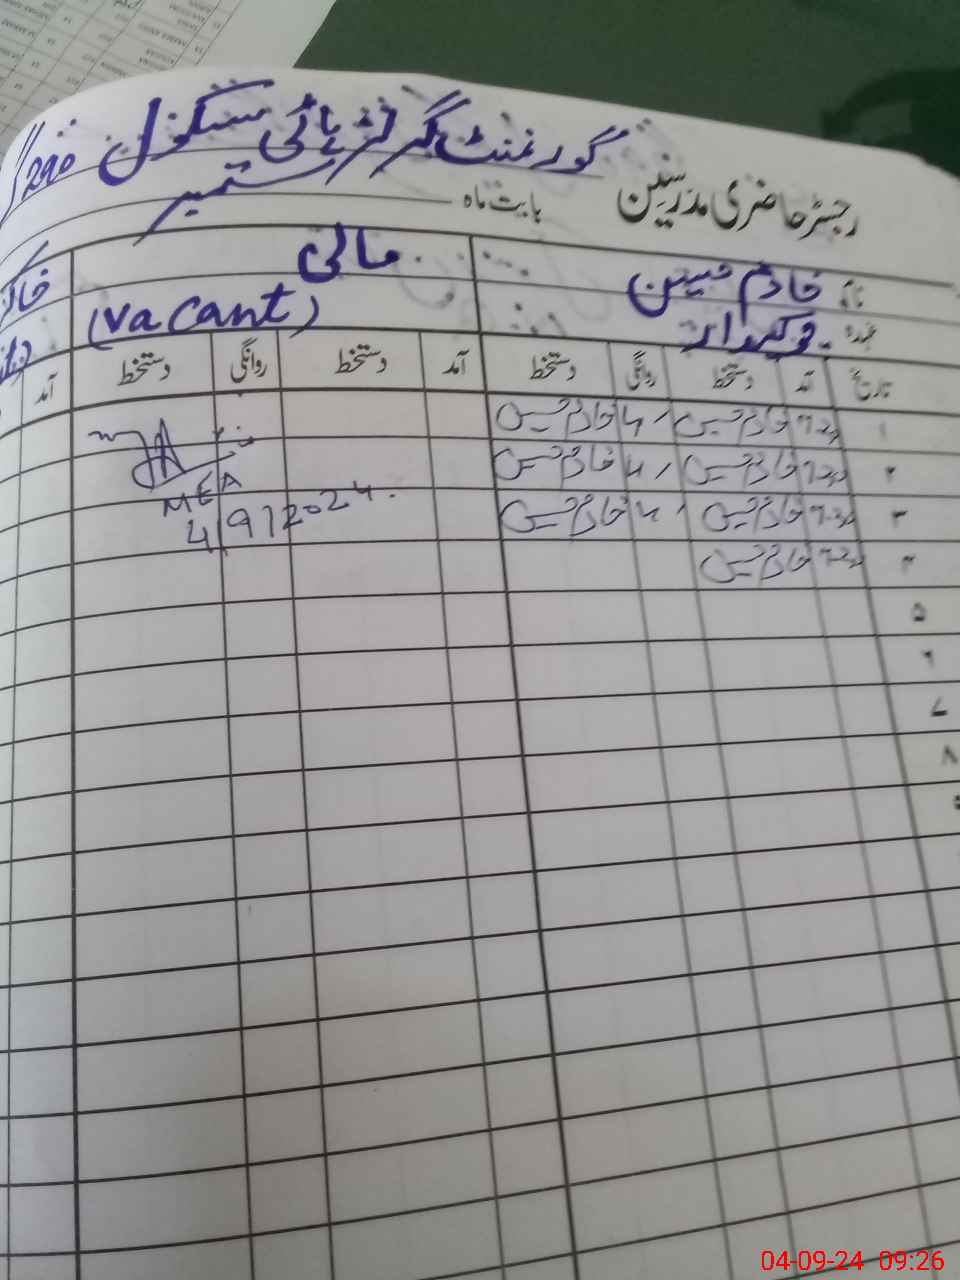 گورنمنٹ گرلز ہائی سکول 290
رجسٹر حاضری مدرسین بابت ماہ ستمبر
نام خادم حسین مالی
عہدہ چوکیدار (vacant)
تاریخ آمد دستخط روانگی دستخط آمد دستخط روانگی دستخط آمد
۱ 7-30 خادم حسین خادم حسین
۲ 7-30 خادم حسین خادم حسین
MEA
۳ 7-30 خادم حسین خادم حسین
4/9/2024.
۴ 7-30 خادم حسین
۵
۶
۷
۸
04-09-24 09:26